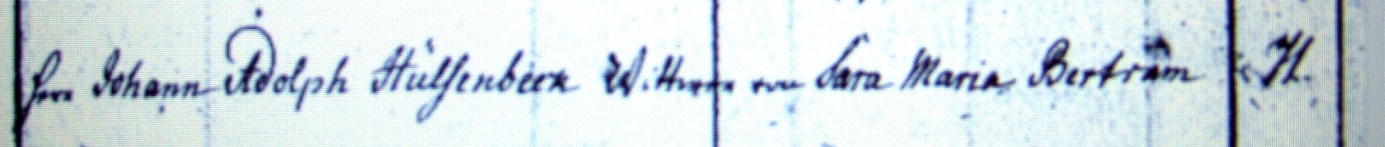 Herr Johann Adolph Hülsenbeck Wittwer von Sara Maria Bertram